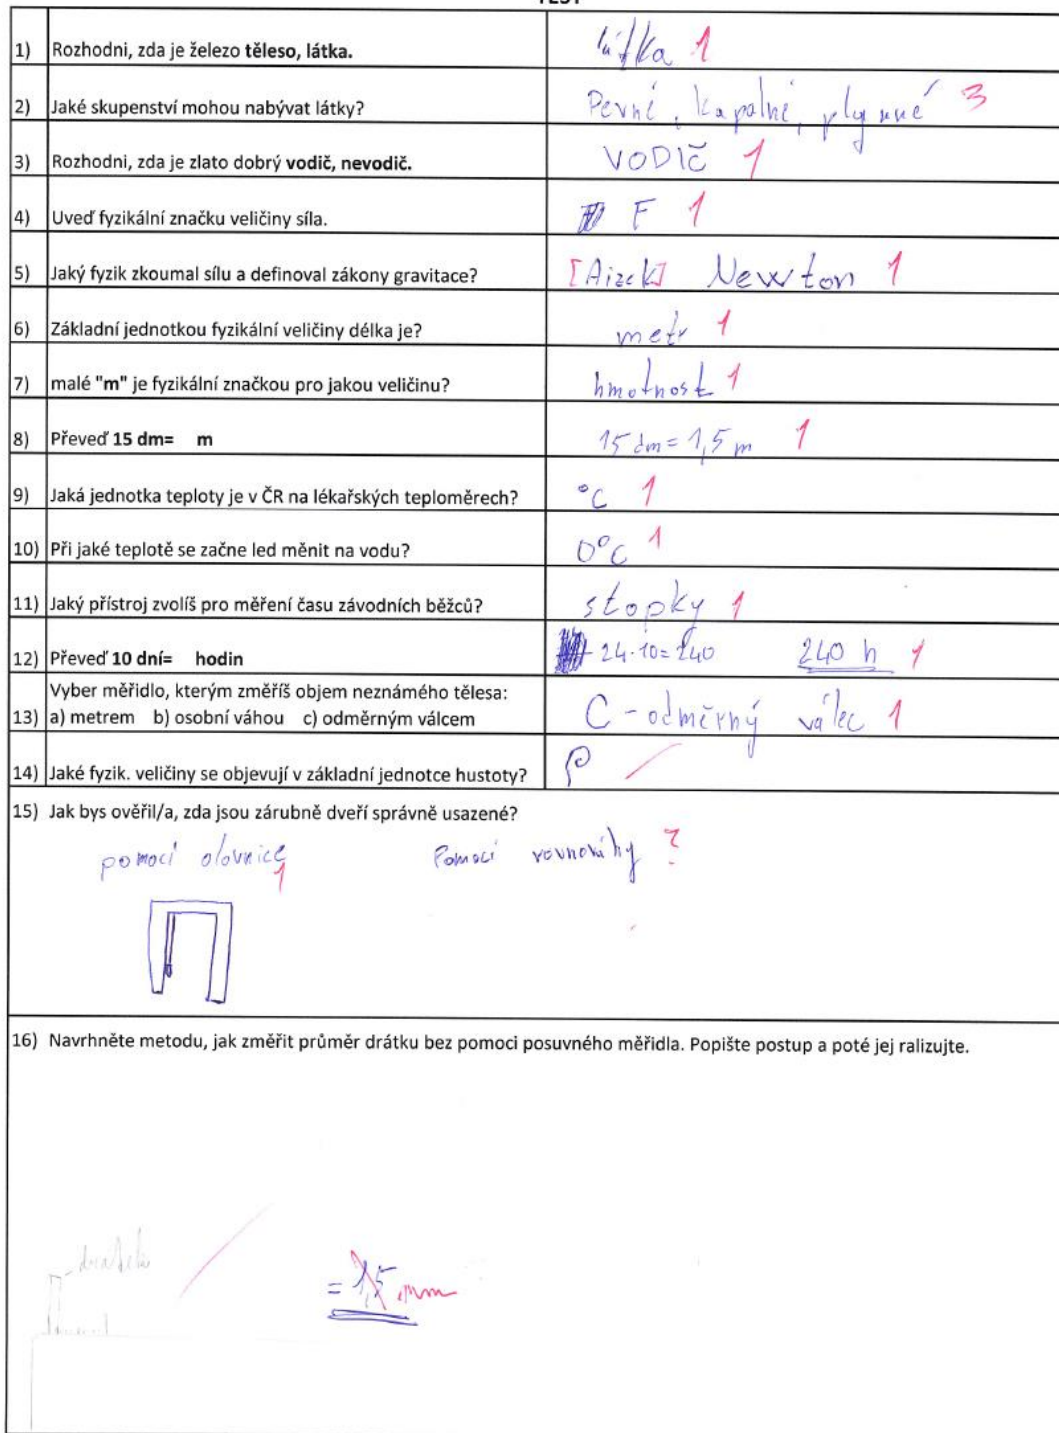 TEST
1) Rozhodni, zda je železo těleso, látka. látka 1
2) Jaké skupenství mohou nabývat látky? Pevné, kapalné, plynné 3
3) Rozhodni, zda je zlato dobrý vodič, nevodič. VODIČ 1
4) Uveď fyzikální značku veličiny síla. F 1
5) Jaký fyzik zkoumal sílu a definoval zákony gravitace? [Aizek] Newton 1
6) Základní jednotkou fyzikální veličiny délka je? metr 1
7) malé "m" je fyzikální značkou pro jakou veličinu? hmotnost 1
8) Převeď 15 dm= m 15 dm = 1,5 m 1
9) Jaká jednotka teploty je v ČR na lékařských teploměrech? °C 1
10) Při jaké teplotě se začne led měnit na vodu? 0°C 1
11) Jaký přístroj zvolíš pro měření času závodních běžců? stopky 1
12) Převeď 10 dní= hodin 24·10=240 240 h 1
Vyber měřidlo, kterým změříš objem neznámého tělesa:
13) a) metrem b) osobní váhou c) odměrným válcem C - odměrný válec 1
14) Jaké fyzik. veličiny se objevují v základní jednotce hustoty? ρ
15) Jak bys ověřil/a, zda jsou zárubně dveří správně usazené?
pomocí olovnice 1 Pomocí rovnováhy ?
16) Navrhněte metodu, jak změřit průměr drátku bez pomoci posuvného měřidla. Popište postup a poté jej ralizujte.
drátek
= 1,5 mm